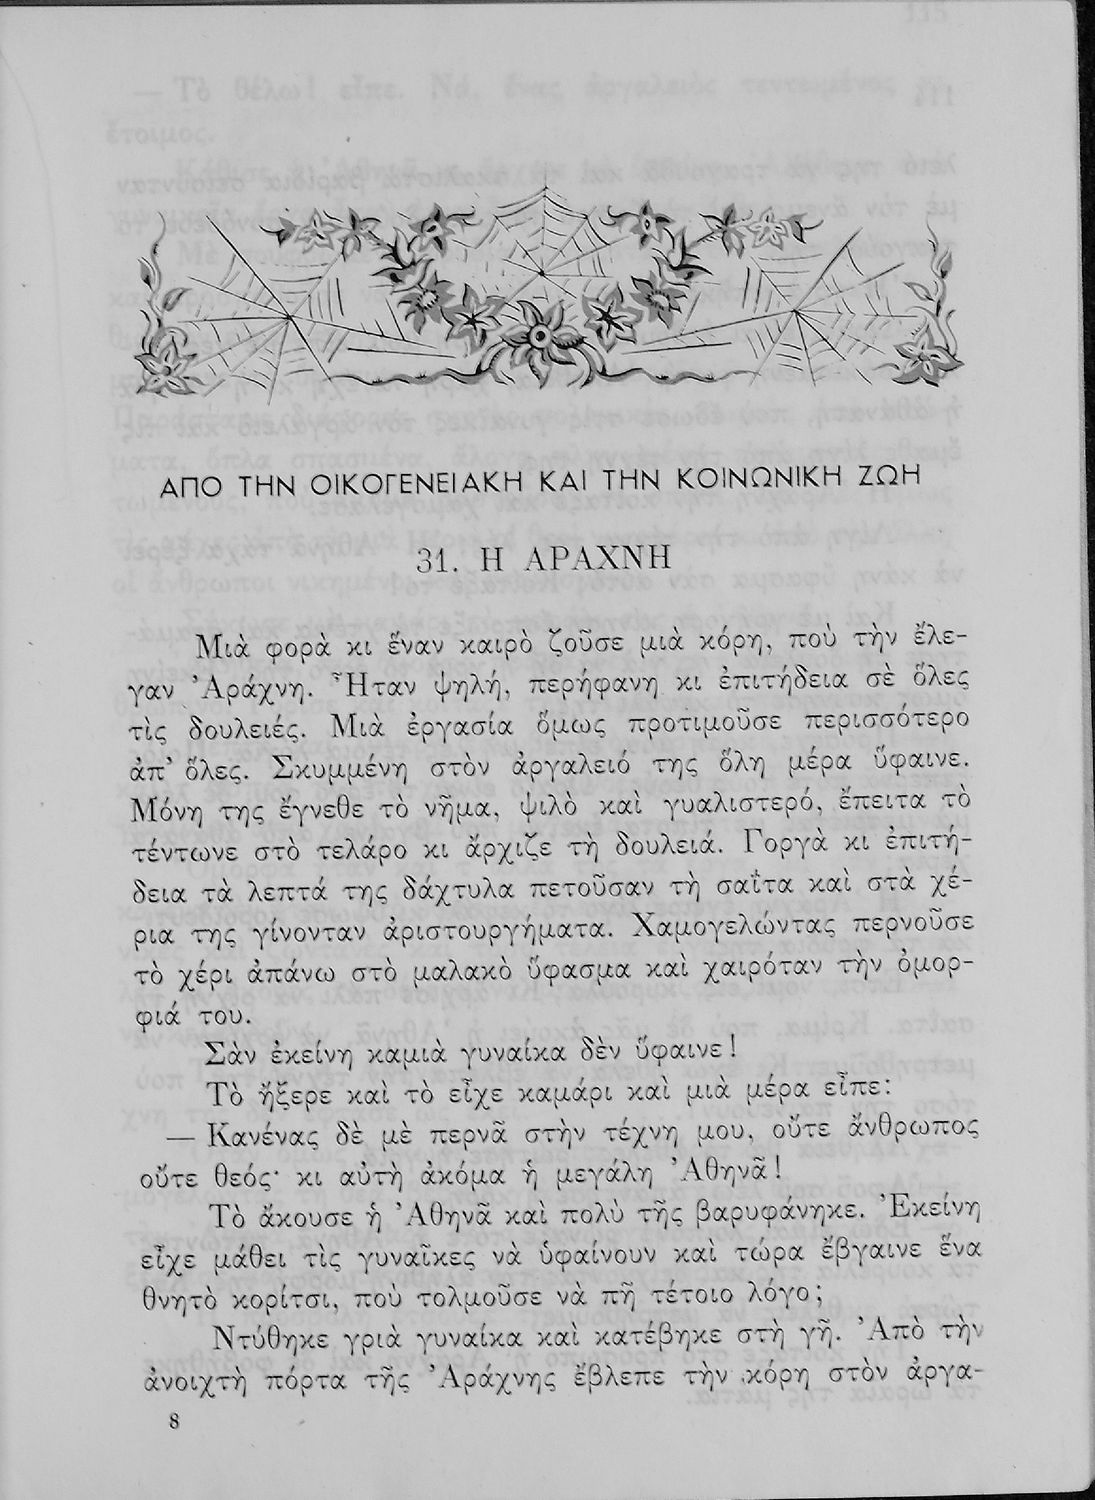 ΑΠΟ ΤΗΝ ΟΙΚΟΓΕΝΕΙΑΚΗ ΚΑΙ ΤΗΝ ΚΟΙΝΩΝΙΚΗ ΖΩΗ
31. Η ΑΡΑΧΝΗ
Μιὰ φορὰ κι ἕναν καιρὸ ζοῦσε μιὰ κόρη, ποὺ τὴν ἔλε-
γαν Ἀράχνη. Ἦταν ψηλή, περήφανη κι ἐπιτήδεια σὲ ὅλες
τὶς δουλειές. Μιὰ ἐργασία ὅμως προτιμοῦσε περισσότερο
ἀπ’ ὅλες. Σκυμμένη στὸν ἀργαλειό της ὅλη μέρα ὕφαινε.
Μόνη της ἔγνεθε τὸ νῆμα, ψιλὸ καὶ γυαλιστερό, ἔπειτα τὸ
τέντωνε στὸ τελάρο κι ἄρχιζε τὴ δουλειά. Γοργὰ κι ἐπιτή-
δεια τὰ λεπτά της δάχτυλα πετοῦσαν τὴ σαΐτα καὶ στὰ χέ-
ρια της γίνονταν ἀριστουργήματα. Χαμογελώντας περνοῦσε
τὸ χέρι ἀπάνω στὸ μαλακὸ ὕφασμα καὶ χαιρόταν τὴν ὀμορ-
φιά του.
Σὰν ἐκείνη καμιὰ γυναίκα δὲν ὕφαινε!
Τὸ ἤξερε καὶ τὸ εἶχε καμάρι καὶ μιὰ μέρα εἶπε:
— Κανένας δὲ μὲ περνᾶ στὴν τέχνη μου, οὔτε ἄνθρωπος
οὔτε θεός· κι αὐτὴ ἀκόμα ἡ μεγάλη Ἀθηνᾶ!
Τὸ ἄκουσε ἡ Ἀθηνᾶ καὶ πολὺ τῆς βαρυφάνηκε. Ἐκείνη
εἶχε μάθει τὶς γυναῖκες νὰ ὑφαίνουν καὶ τώρα ἔβγαινε ἕνα
θνητὸ κορίτσι, ποὺ τολμοῦσε νὰ πῆ τέτοιο λόγο;
Ντύθηκε γριὰ γυναίκα καὶ κατέβηκε στὴ γῆ. Ἀπὸ τὴν
ἀνοιχτὴ πόρτα τῆς Ἀράχνης ἔβλεπε τὴν κόρη στὸν ἀργα-
8